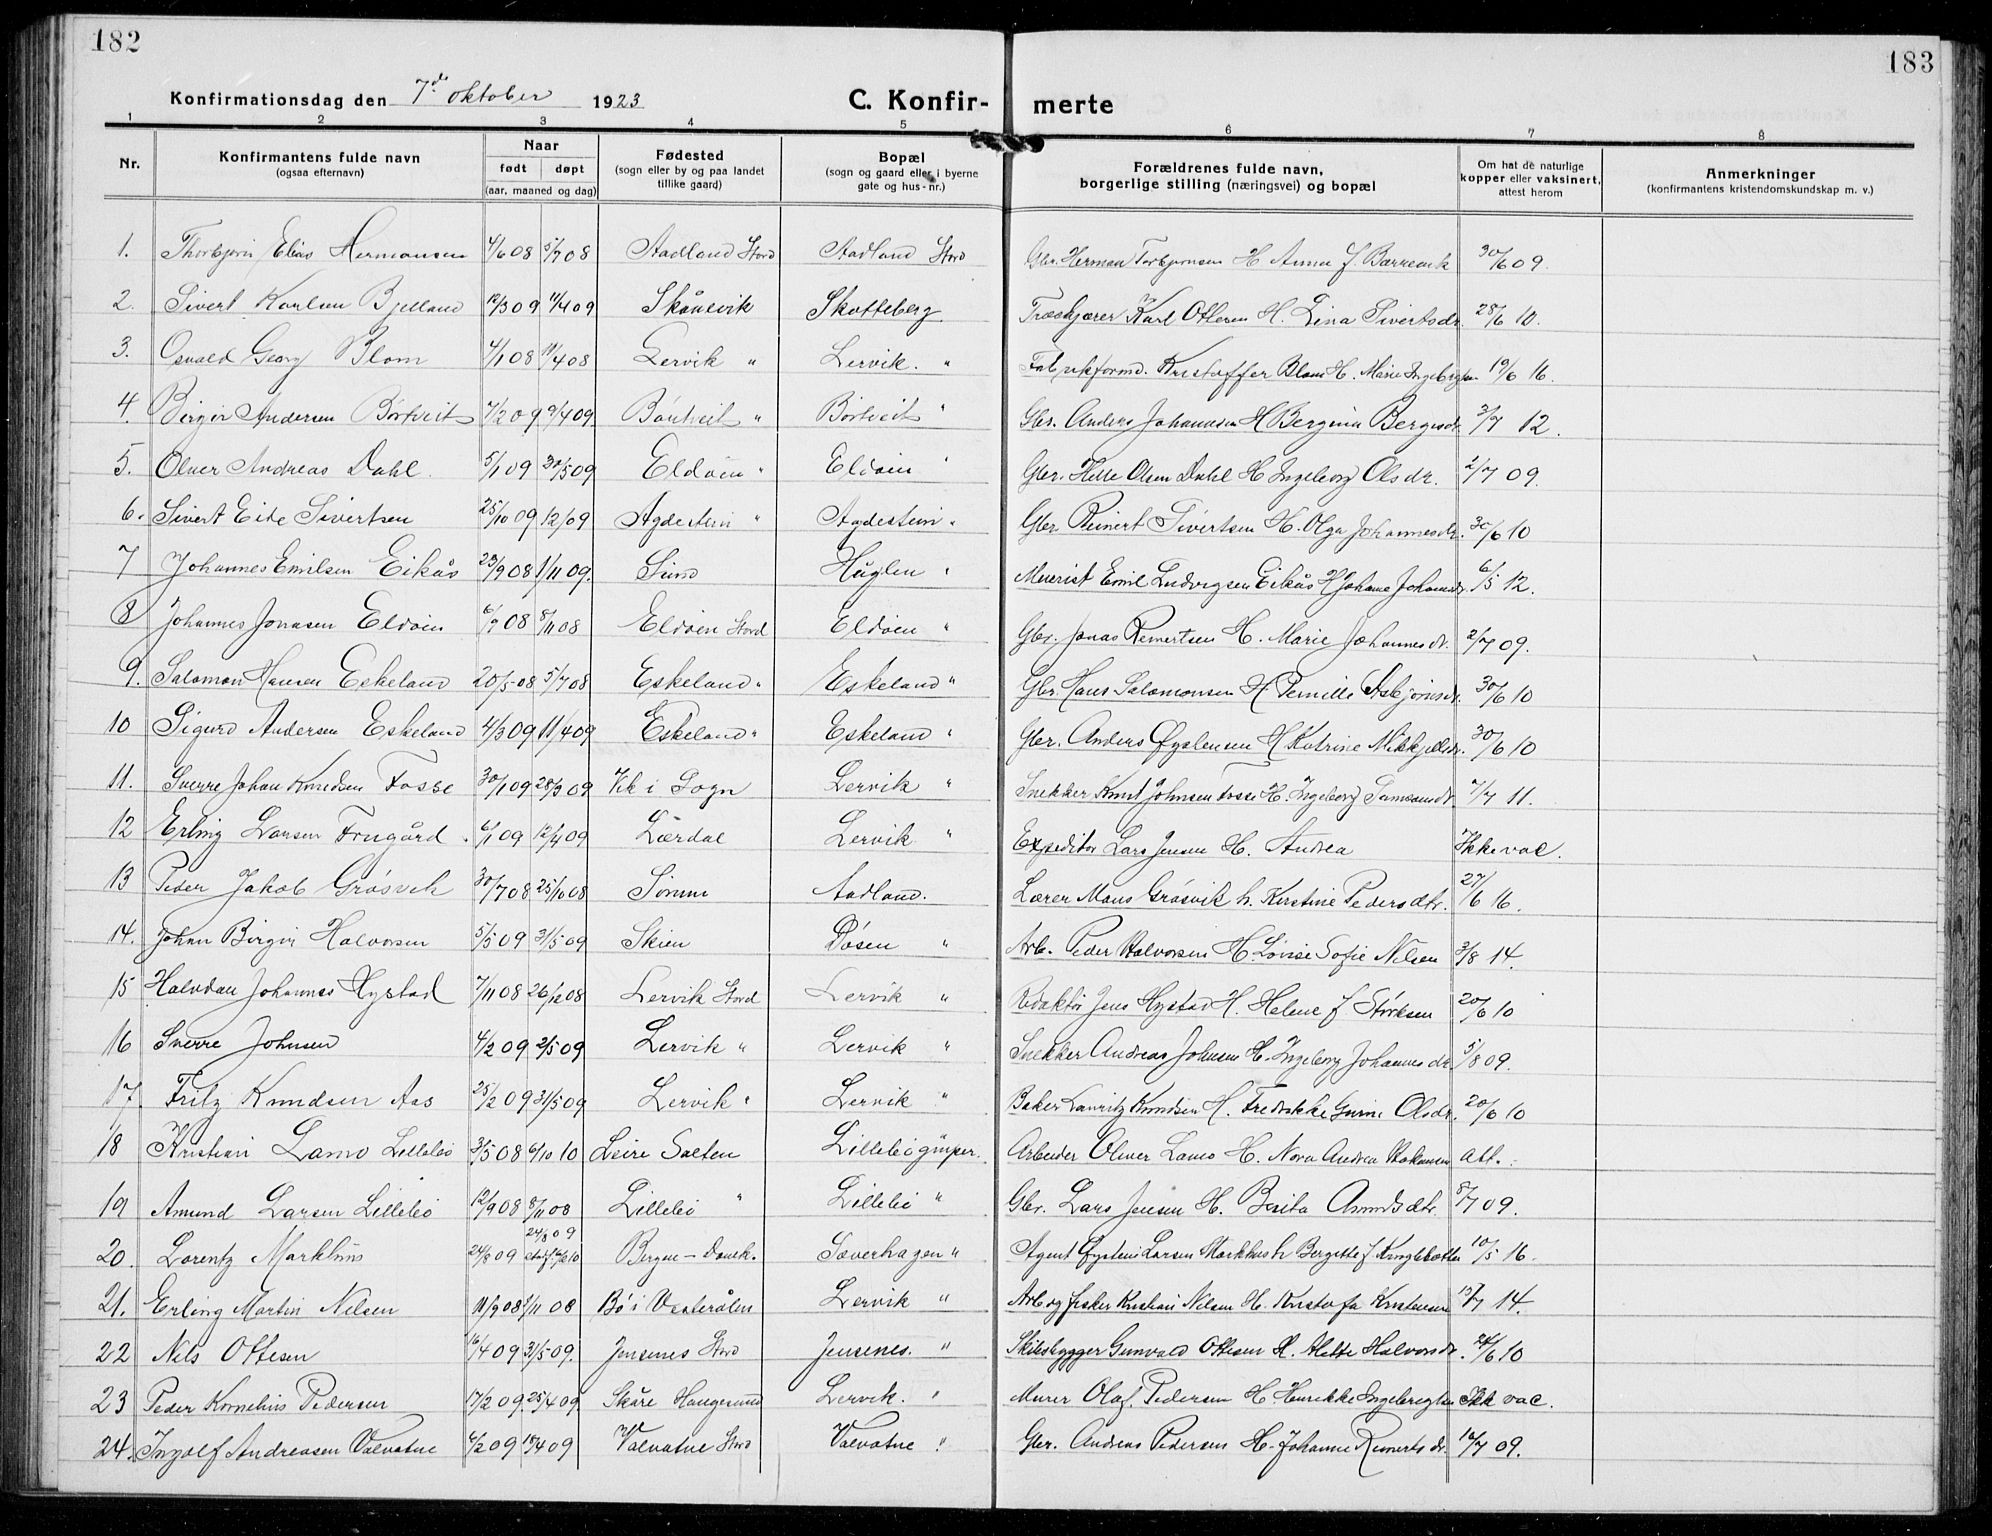 182
183
Konfirmationsdag den 7de oktober 1923
C. Konfir- merte
1 2 3 4 5 6 7 8
Nr.
Konfirmantens fulde navn
(ogsaa efternavn)
Naar
født døpt
(aar, maaned og dag)
Fødested
(sogn eller by og paa landet
tillike gaard)
Bopæl
(sogn og gaard eller i byerne
gate og hus-nr.)
Forældrenes fulde navn,
borgerlige stilling (næringsvei) og bopæl
Om hat de naturlige
kopper eller vaksinert,
attest herom
Anmerkninger
(konfirmantens kristendomskundskap m. v.)
1. Thorbjørn Elias Hermansen 4/6 08 5/7 08 Aadland Stord Aadland Stord Gbr. Herman Torbjørnsen H. Anna f. 30/6 09.
2. Sivert Karlsen Bjelland 12/3 09 11/4 09 Skånevik Skotteberg Træskjærer Karl Ottesen H. Lina Sivertsdr. 28/6 10.
3. Osvald Georg Blom 4/1 08 11/4 08 Lervik " Lervik. " Kristoffer Blom H. Marie 19/6 16.
4. Birger Andersen Börtveit 7/2 09 9/4 09. Börtveit " Börtveit " Gbr. Anders Johannesen H Bergina Bergesdr. 3/7 12.
5. Oluer Andreas Dahl. 5/1 09 30/5 09 Eldöen " Eldöen " Gbr. Helle Olsen Dahl H Ingeborg Olsdr. 2/7 09.
6. Sivert Eide Sivertsen 25/10 09 12/09 Agdestein " Agdestein " Gbr. Reinert Sivertsen H. Olga Johannesdr. 30/6 10
7 Johannes Emilsen Eikås 23/9 08 1/11 09. Sund Huglen " Emil Ludvigsen Eikås H Johanne 6/5 12.
8 Johannes Jonasen Eldöen 6/9 08 8/11 08 Eldöen Stord Eldöen " Gbr. Jonas Reinertsen H. Marie Johannesdr. 2/7 09.
9. Salamon Hansen Eskeland 20/5 08 5/7 08 Eskeland " Eskeland " Gbr. Hans Salamonsen H Pernille Asbjörnsdr. 30/6 10
10 Sigurd Andersen Eskeland 4/3 09 11/4 09 Eskeland " Eskeland " Gbr. Anders Øystensen H Katrine Mikkjellsdr. 30/6 10
11. Sverre Johan Knudsen Fosse 30/1 09 28/3 09 Vik i Sogn Lervik " Snekker Knut Johnsen Fosse H. Ingeborg Samsondr 7/7 11.
12 Erling Larsen Frugård 6/1 09 12/4 09 Lærdal Lervik " Expeditør Lars Jensen H. Andrea Ikke vac.
13 Peder Jakob Grösvik 30/7 08 25/10 08 Sömna Aadland. Lærer Mons Grösvik h. Kirstine Pedersdtr. 27/6 16.
14. Johan Birger Halvorsen 5/5 09 31/5 09 Skien Dösen " Arb. Peder Halvorsen H. Lovise Sofie Nilsen 3/8 14.
15 Halvdan Johannes Hystad 7/11 08 26/12 08 Lervik Stord Lervik " Redaktör Jens Hystad H. Helene f. Störksen 20/6 10
16 Sverre Johnsen 4/2 09 2/5 09 Lervik " Lervik " Snekker Andreas Johnsen H. Ingeborg Johannesdr. 5/8 09.
17 Fritz Knudsen Aas 25/2 09 31/5 09 Lervik " Lervik " Baker Lauritz Knudsen H. Fredrikke Gurine Olsdr. 20/6 10
18 Kristian Lamo Lillebö 3/5 08 6/10 10 Leire Salten Lillebö Arbeider Oliver Lamo H. Nora Andrea Hakansen att.
19 Amund Larsen Lillebö 12/9 08 8/11 08 Lillebö " Lillebö " Gbr. Lars Jensen H. Berita Amundsdtr. 8/7 09.
20. Lorentz Markhus 24/6 09 24/8 09 Bergen - Domk. Sæverhagen " Agent Øystein Larsen Markhus h Bergitte f. 10/5 16.
21. Erling Martin Nilsen 11/9 08 1/11 08 Bö i Vesterålen Lervik " Arb. og fisker Kristian Nilsen H. Kristofa Kristensen 13/7 14.
22 Nils Ottesen 16/4 09 31/5 09. Jensenes Stord Jensenes. " Skibsbygger Gunvald Ottesen H. Mette Halvorsdr. 24/6 10
23 Peder Kornelius Pedersen 17/2 09 25/4 09. Skåre Haugesund Lervik. " Murer Olaf Pedersen H. Henrikke Ingebregtsen Ikk vac.
24. Ingolf Andreasen Valvatne 6/2 09 18/4 09 Valvatne Stord Valvatne " Gbr. Andreas Pedersen H. Johanne Reinertsdr. 12/7 09.